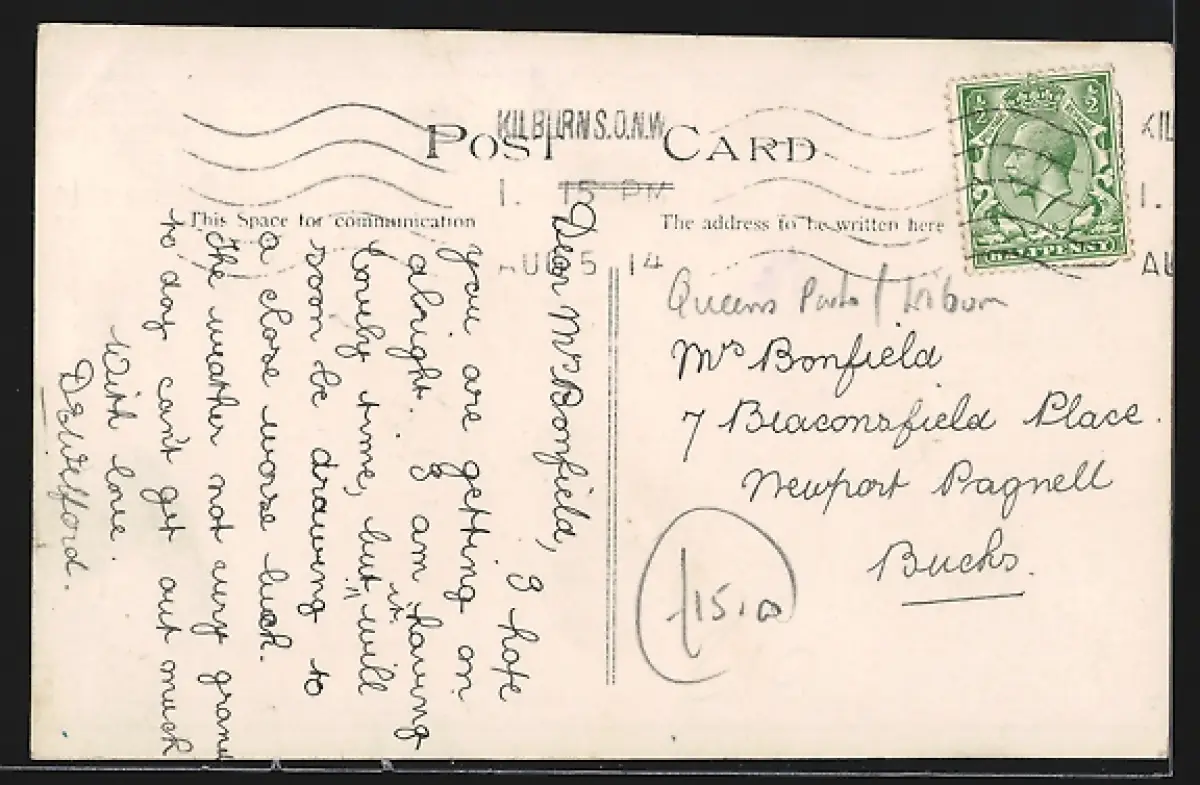 POST CARD
KILBURN S.O.N.W
1. 15 PM
AUG 5 14
KIL
1.
AU
This Space for communication
The address to be written here
½ ½
HALFPENNY
Dear Mrs Bonfield, I hope
you are getting on
alright. I am having
lovely time, but it will
soon be drawing to
a close worse luck.
The weather not very grand
to day can't get out much
With love.
D E Welford.
Queens Park / Kilburn
Mrs Bonfield
7 Beaconsfield Place.
Newport Pagnell
Bucks.
£15.00